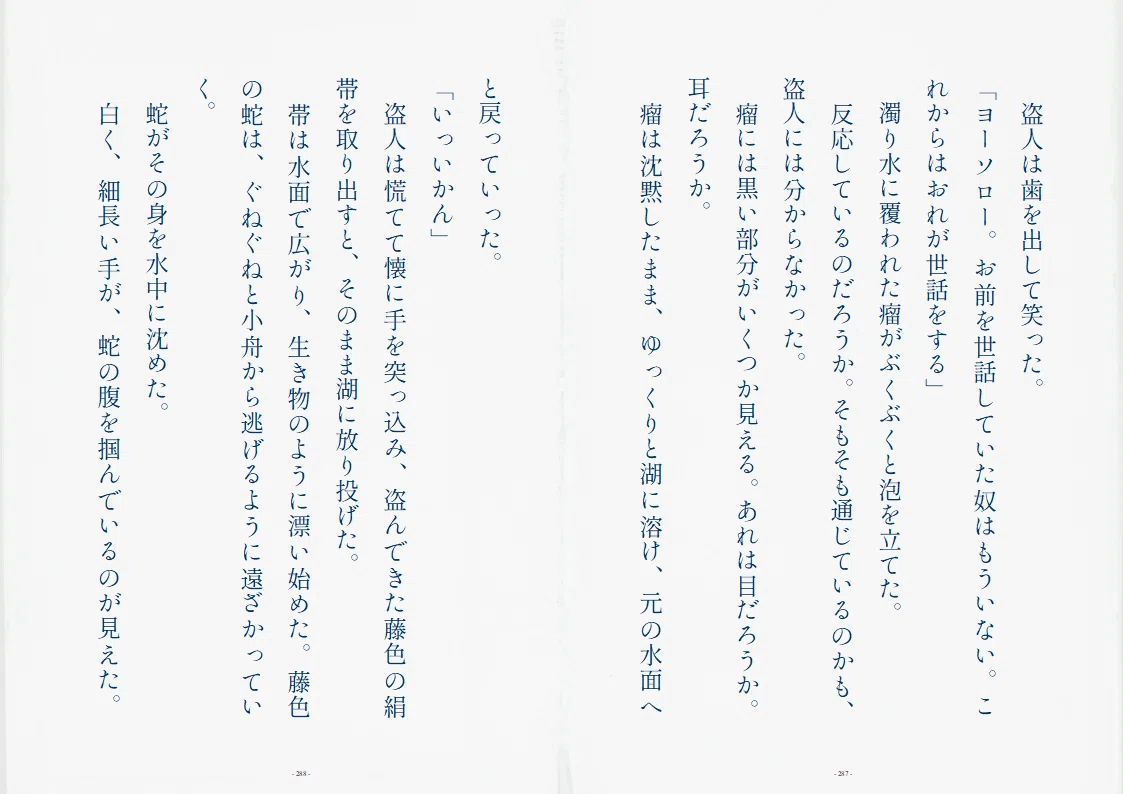 盗人は歯を出して笑った。
「ヨーソロー。お前を世話していた奴はもういない。こ
れからはおれが世話をする」
濁り水に覆われた瘤がぶくぶくと泡を立てた。
反応しているのだろうか。そもそも通じているのかも、
盗人には分からなかった。
瘤には黒い部分がいくつか見える。あれは目だろうか。
耳だろうか。
瘤は沈黙したまま、ゆっくりと湖に溶け、元の水面へ
- 287 -
と戻っていった。
「いっいかん」
盗人は慌てて懐に手を突っ込み、盗んできた藤色の絹
帯を取り出すと、そのまま湖に放り投げた。
帯は水面で広がり、生き物のように漂い始めた。藤色
の蛇は、ぐねぐねと小舟から逃げるように遠ざかってい
く。
蛇がその身を水中に沈めた。
白く、細長い手が、蛇の腹を掴んでいるのが見えた。
- 288 -